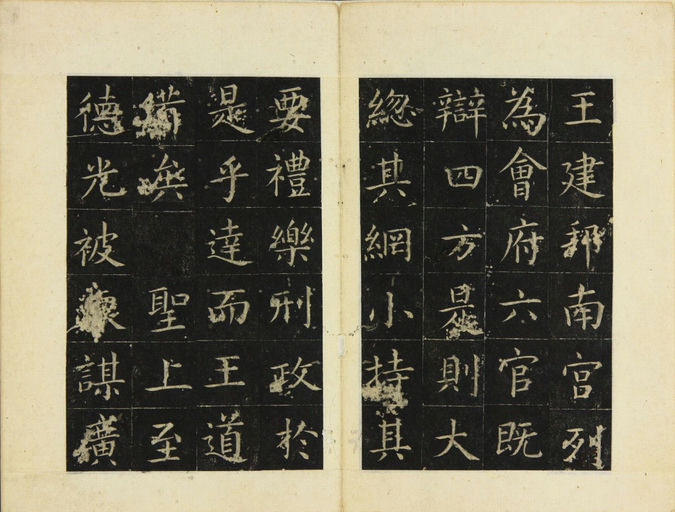 王建邦南宮列
為會府六官既
辯四方是則大
緫其網小持其
要禮樂刑政於
是乎達而王道
備矣 聖上至
德光被謀廣